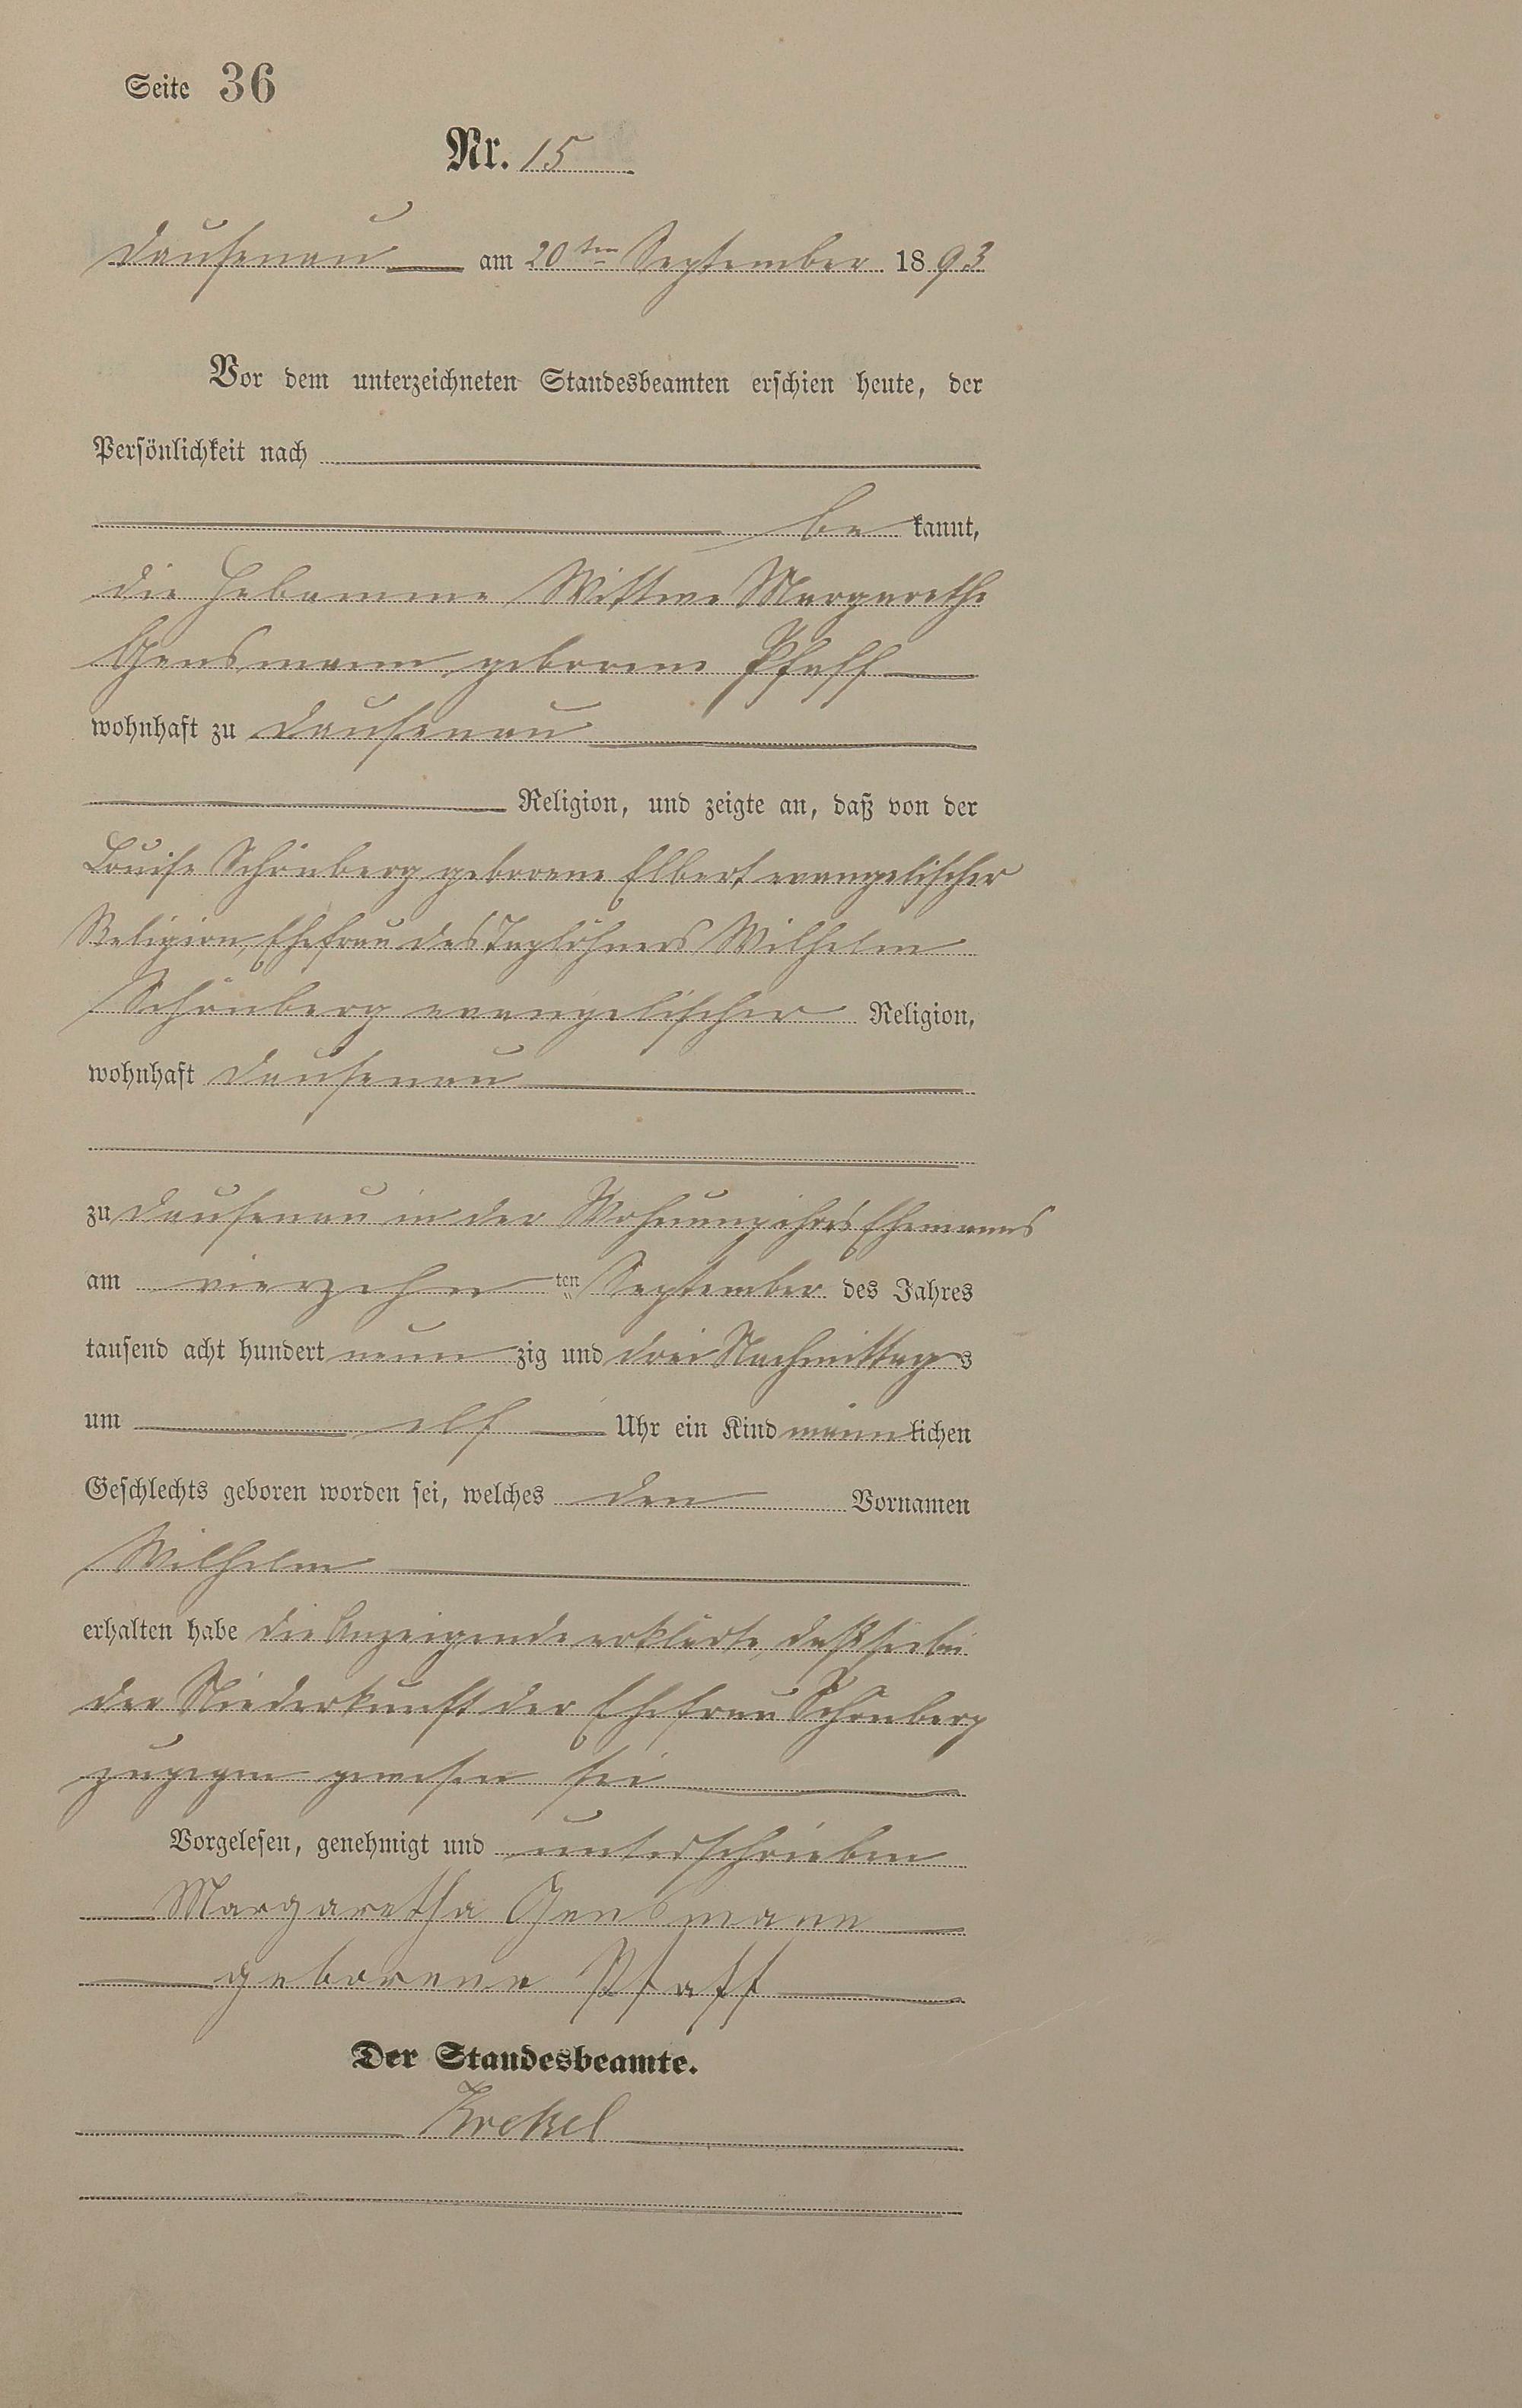 Seite 36
Nr. 15
Dausenau am 20ten September 1893
Vor dem unterzeichneten Standesbeamten erschien heute, der
Persönlichkeit nach
be kannt,
die Hebamme Wittwe Margarethe
Gensmann, geborene Pfaff
wohnhaft zu Dausenau
Religion, und zeigte an, daß von der
Louise Schönberg geborene Elbert, evangelischer
Religion, Ehefrau des Taglöhners Wilhelm
Schönberg evangelischer Religion,
wohnhaft Dausenau
zu Dausenau in der Wohnung ihres Ehemanns
am vierzehn ten September des Jahres
tausend acht hundert neun zig und drei Nachmittags
um elf Uhr ein Kind männ lichen
Geschlechts geboren worden sei, welches den Vornamen
Wilhelm
erhalten habe die Anzeigende erklärte, daß sie bei
der Niederkunft der Ehefrau Schönberg
zugegen gewesen sei
Vorgelesen, genehmigt und unterschrieben
Margaretha Gensmann
geborene Pfaff
Der Standesbeamte.
Krekel